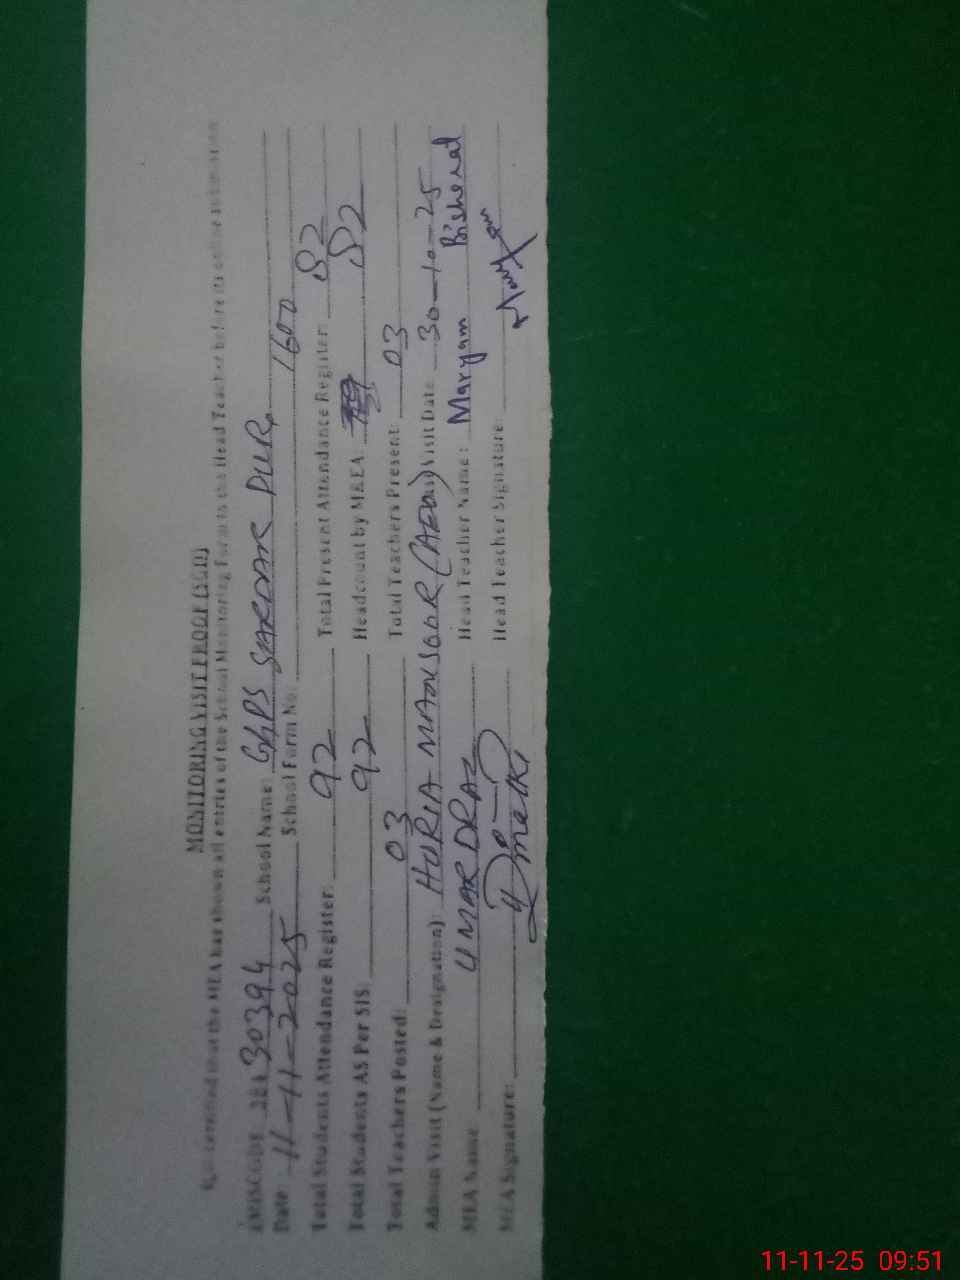 MONITORING VISIT PROOF (SGD)
It is certified that the MEA has shown all entries of the School Monitoring Form to the Head Teacher before its online submission
EMISCODE 30394 School Name: GGPS SARDAR PUR
Date: 11-11-2025 School Form No: 1600
Total Students Attendance Register: 92 Total Present Attendance Register: 82
Total Students AS Per SIS: 92 Headcount by MEA: 82
Total Teachers Posted: 03 Total Teachers Present: 03
Admin Visit (Name & Designation): HURIA MANSOOR (AEO) Visit Date 30-10-25
MEA Name: UMAR DRAZ Head Teacher Name: Maryam Bisharat
MEA Signature: Head Teacher Signature:
11-11-25 09:51